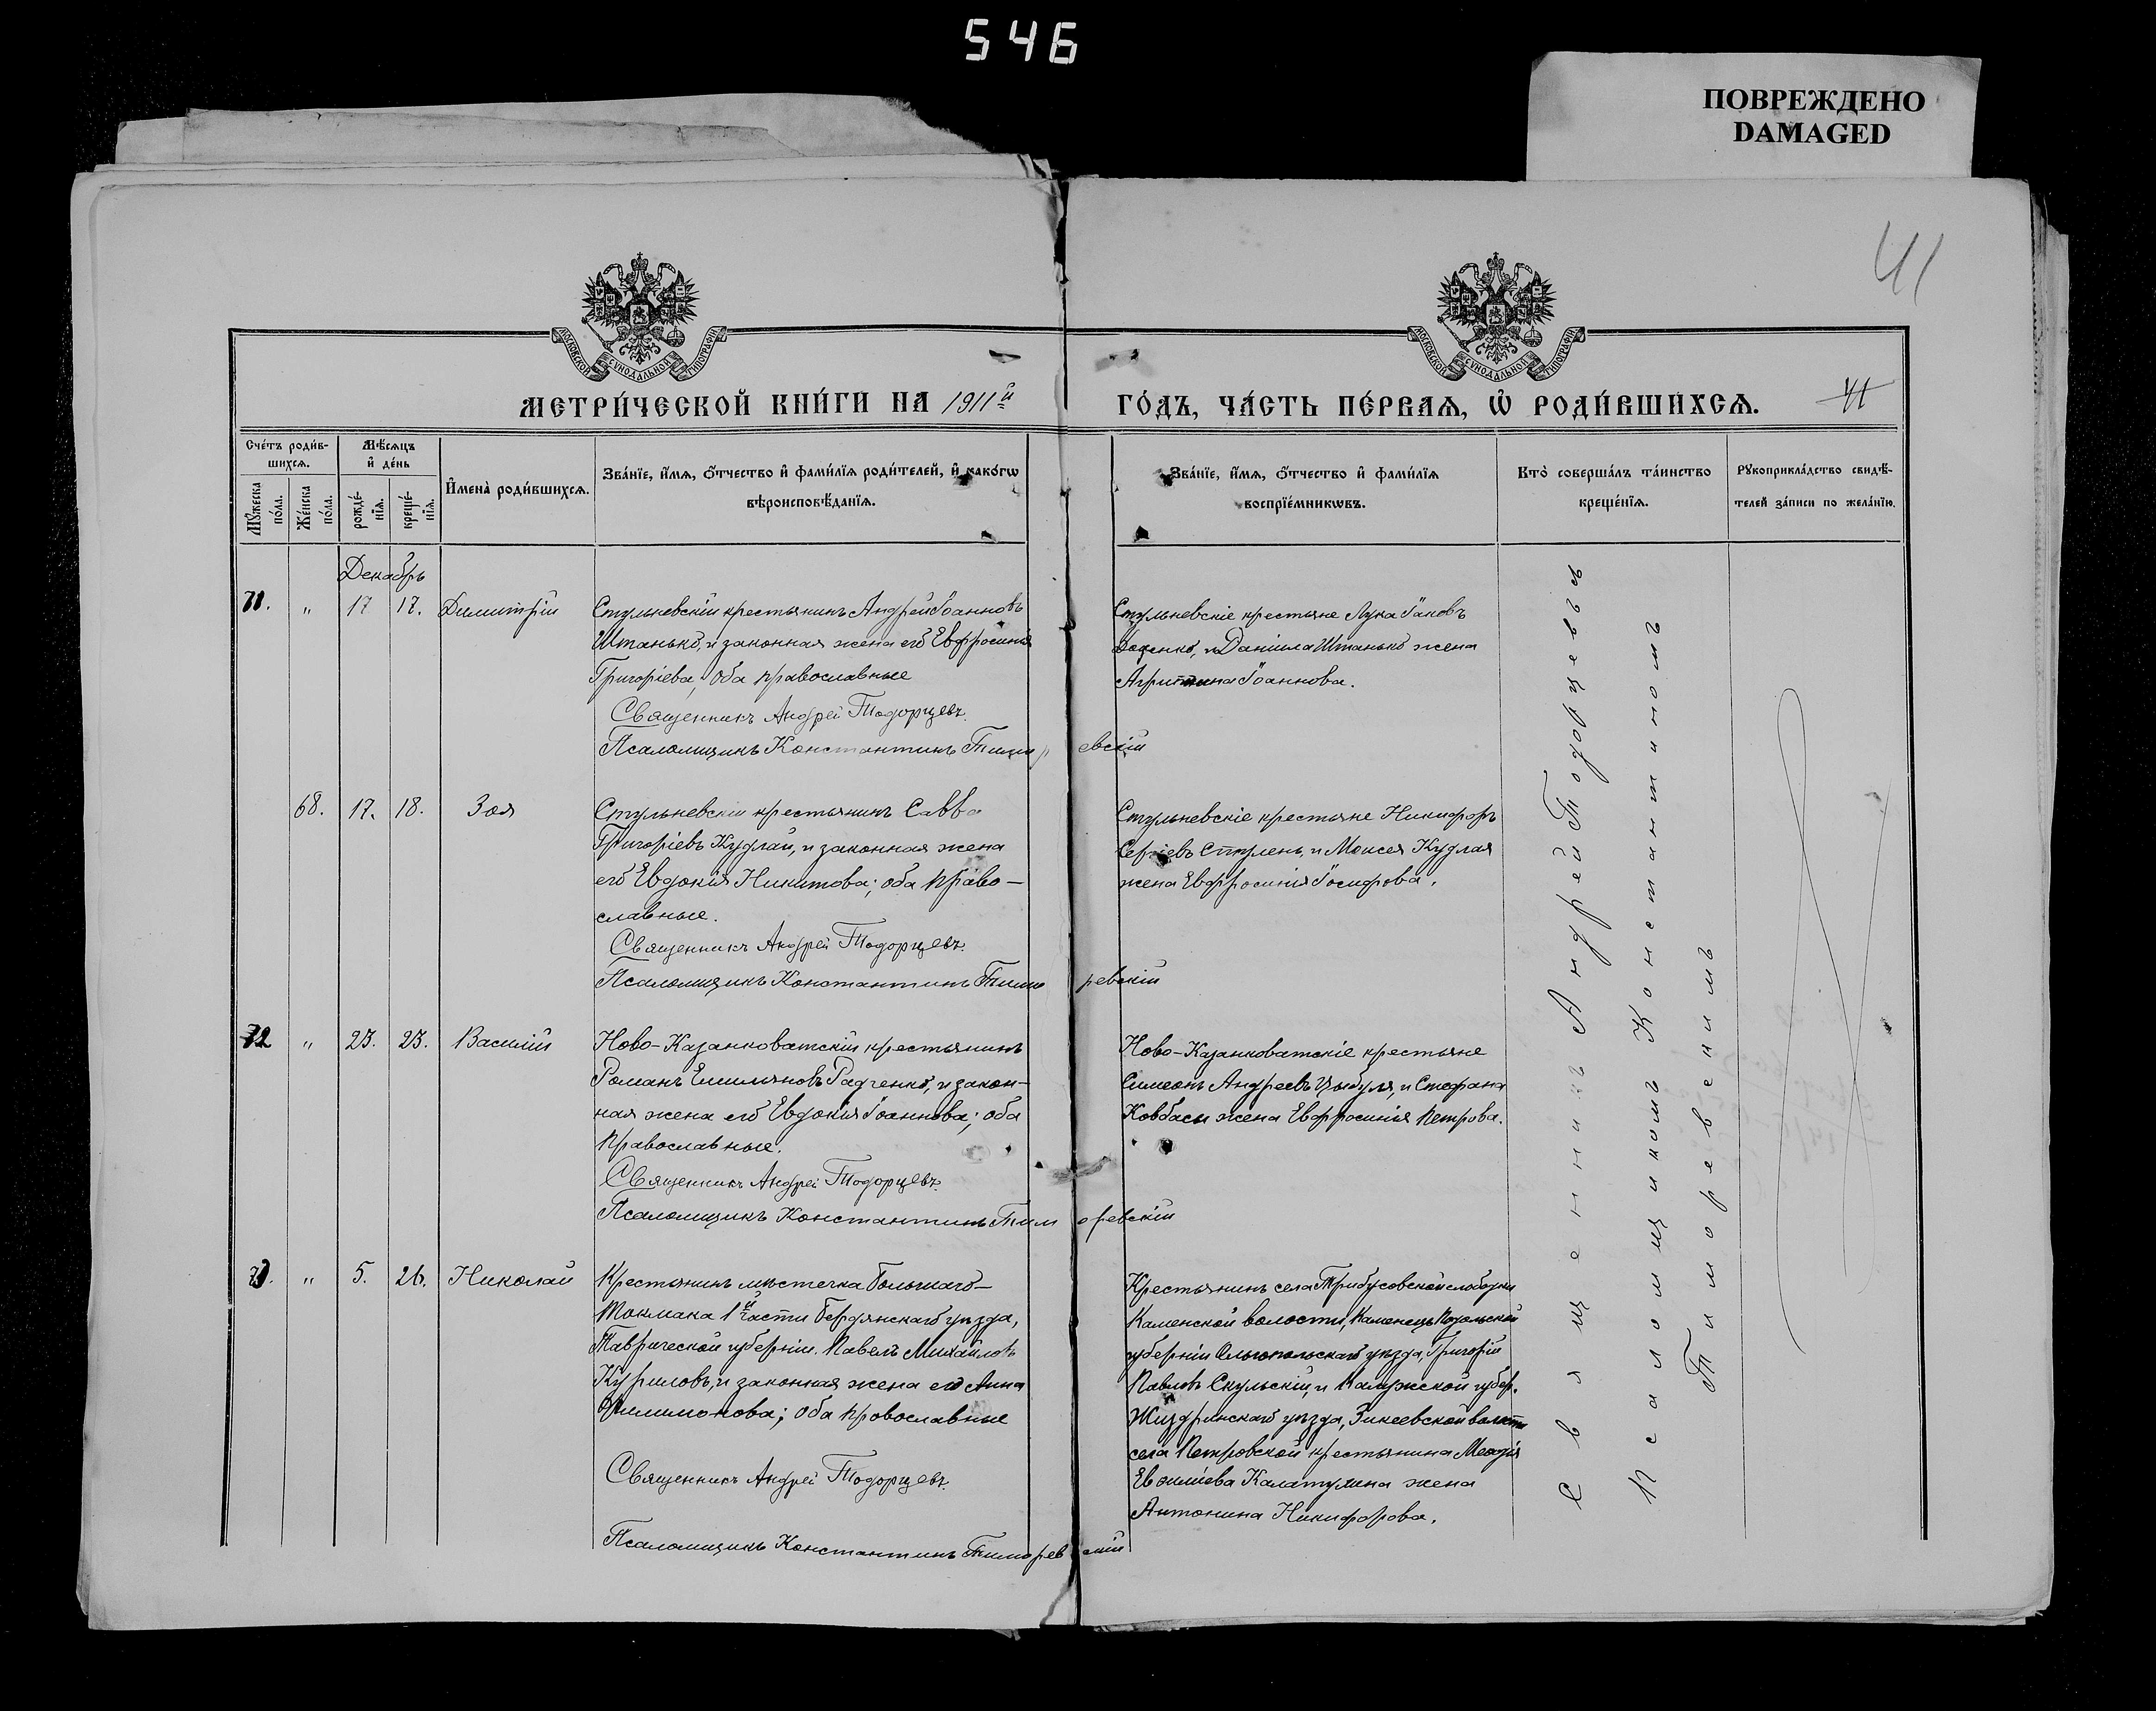 546
ПОВРЕЖДЕНО
DAMAGED
41
МОСКОВСКОЙ СѴНОДАЛЬНОЙ ТИПОГРАФІИ
МОСКОВСКОЙ СѴНОДАЛЬНОЙ ТИПОГРАФІИ
МЕТРИ́ЧЕСКОЙ КНИ́ГИ НА 1911й
ГО́ДЪ, ЧА́СТЬ ПЕ́РВАѦ, Ѡ҆ РОДИ́ВШИХСѦ.
41
Сче́тъ роди́в-
шихсѧ.
Мꙋ́жеска по́ла.
Же́нска по́ла.
Мѣ́сѧцъ
и҆ де́нь
рожде́-
нїѧ.
креще́-
нїѧ.
И҆мена̀ роди́вшихсѧ.
Зва́нїе, и҆́мѧ, ѻ҆́тчество и҆ фами́лїѧ роди́телей, и҆ како́гѡ
вѣроисповѣ́данїѧ.
Зва́нїе, и҆́мѧ, ѻ҆́тчество и҆ фами́лїѧ
воспрїе́мникѡвъ.
Кто̀ соверша́лъ та́инство
креще́нїѧ.
Рꙋкоприкла́дство свидѣ́-
телей за́писи по жела́нїю.
Декабрь
71. " 17 17. Димитрій
Стульневскій крестьянинъ Андрей Іоанновъ
Штанько, и законная жена его Евфросинія
Григоріева, оба православные
Священникъ Андрей Тодорцевъ.
Псаломщикъ Константинъ Тиморевскій
Стульневскіе крестьяне Лука Іаковъ
Доценко, и Даніила Штанько жена
Агрипина Іоаннова.
68. 17. 18. Зоя
Стульневскій крестьянинъ Савва
Григоріевъ Кудлай, и законная жена
его Евдокія Никитова; оба право-
славные.
Священникъ Андрей Тодорцевъ.
Псаломщикъ Константинъ Тиморевскій
Стульневскіе крестьяне Никифоръ
Сергіевъ Стрлень, и Моисея Кудлая
жена Евфросинія Іосифова.
72 " 23. 23. Василій
Ново-Казанковатскій крестьянинъ
Романъ Емильяновъ Радченко, и закон-
ная жена его Евдокія Іоаннова; оба
православные.
Священникъ Андрей Тодорцевъ.
Псаломщикъ Константинъ Тиморевскій
Ново-Казанковатскіе крестьяне
Симеонъ Андреевъ Цыбуля, и Стефана
Ковбасы жена Евфросинія Петрова.
73. " 5. 26. Николай
Крестьянинъ мѣстечка Большаго-
Токмака 1й части Бердянскаго уѣзда,
Таврической губерніи. Павелъ Михайловъ
Куриловъ, и законная жена его Анна
Филимонова; оба провославные
Священникъ Андрей Тодорцевъ.
Псаломщикъ Константинъ Тиморевскій
Крестьянинъ села Трибусовской слободки
Каменской волости, Каменецъ Подольской
губерніи Ольгопольскаго уѣзда, Григорій
Павловъ Скульскій, и Калужской губер.
Жиздринскаго уѣзда, Зикеевской волости
села Петровской крестьянина
Калатулина жена
Антонина Никифорова.
Священникъ Андрей Тодорцевъ съ
Псаломщикомъ Константиномъ
Тиморевскимъ